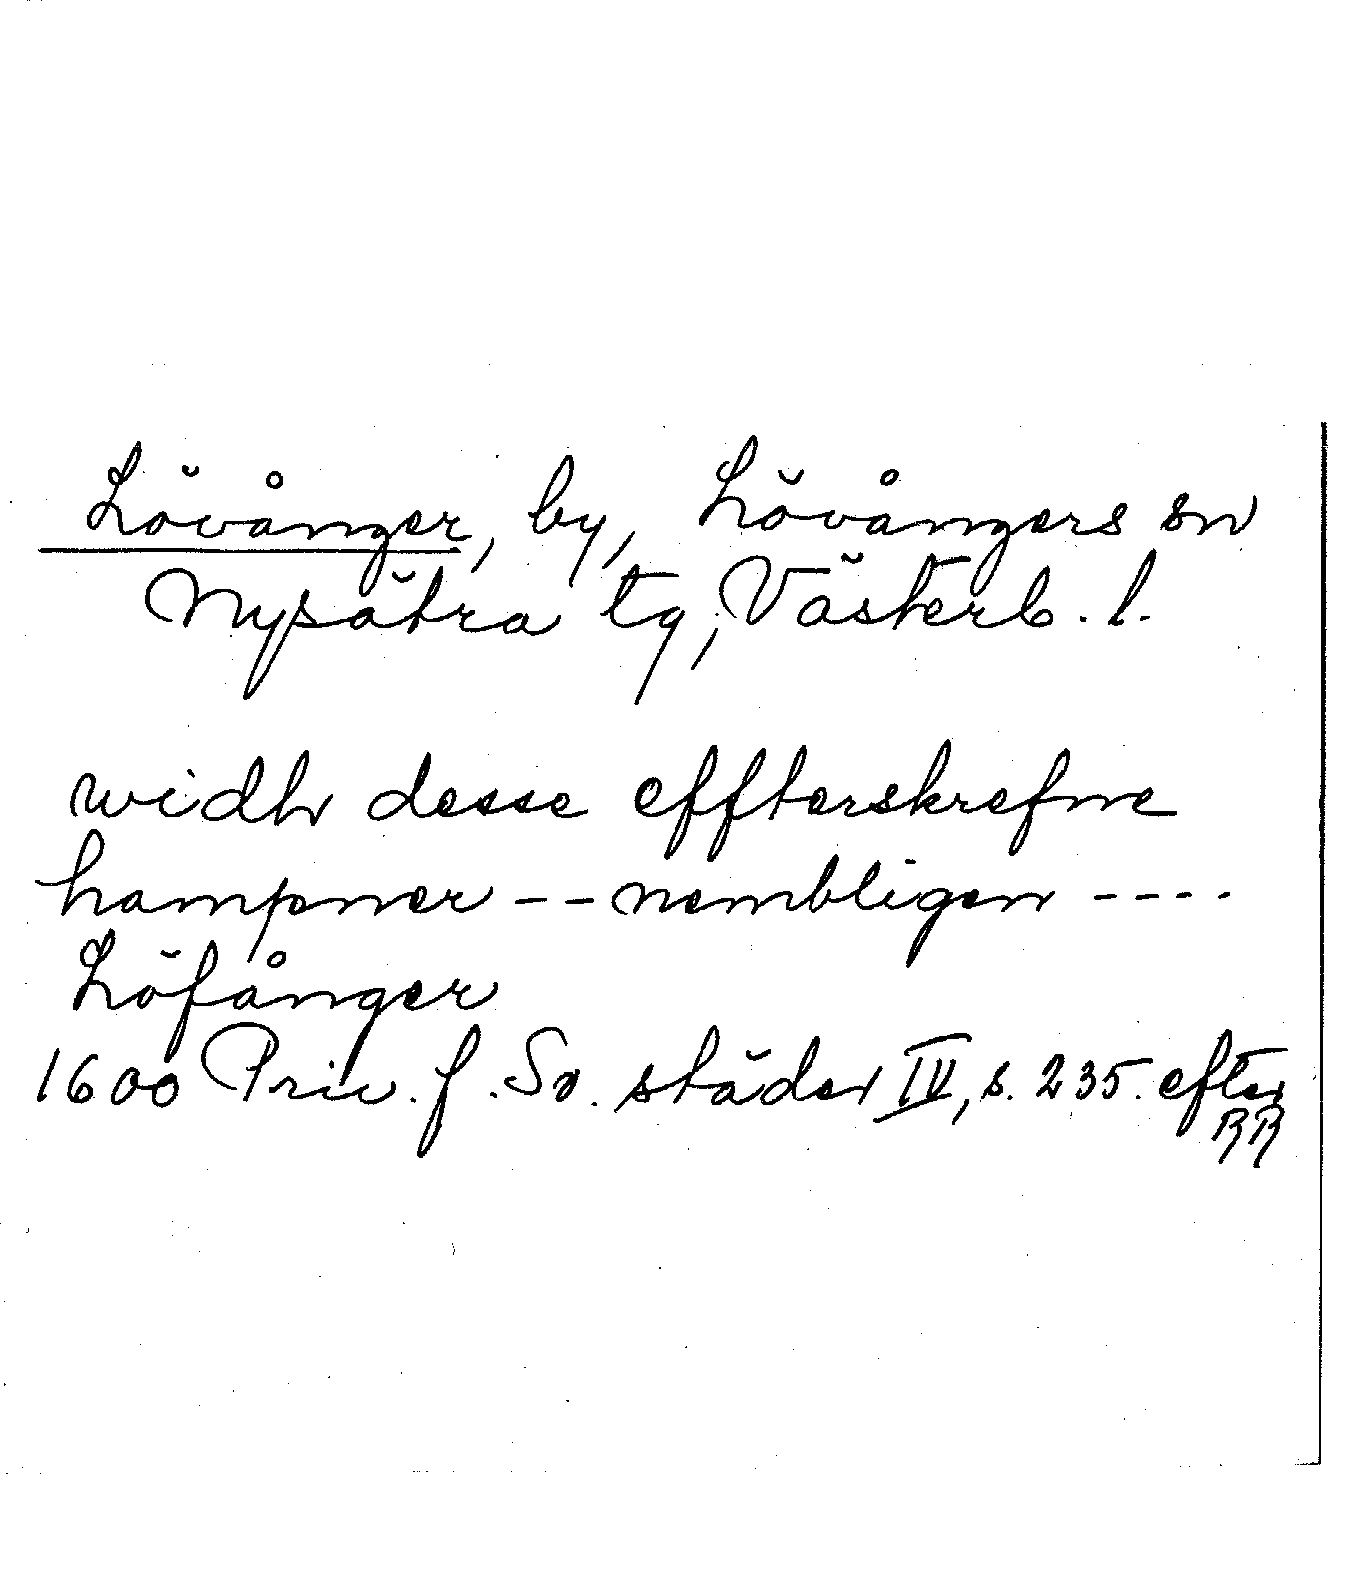 Lövånger, by, Lövångers sn
Nysätra tg, Västerb. l.
widh desse effterskrefne
hampner -- nembligen ----
Löfånger
1600 Priv. f. Sv. städer IV, s. 235. efter
RR